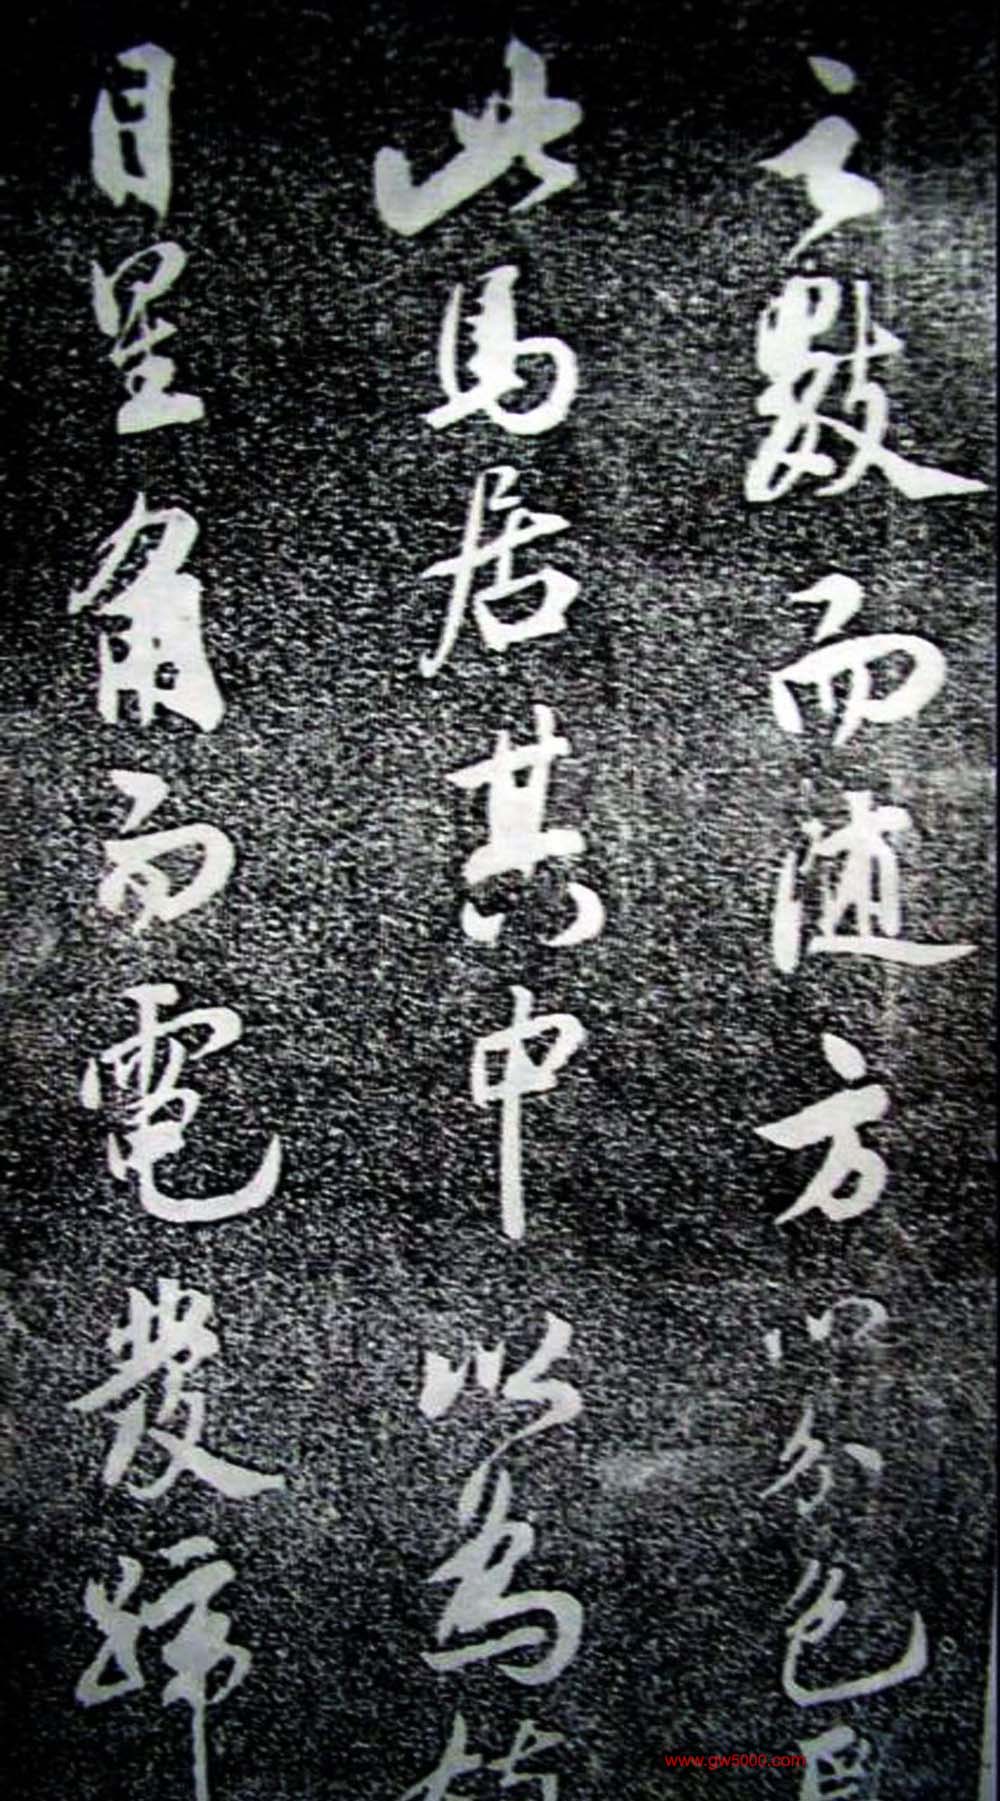 之數而随方以分色
此馬居其中以為
目星角而電發蹄
www.gw5000.com